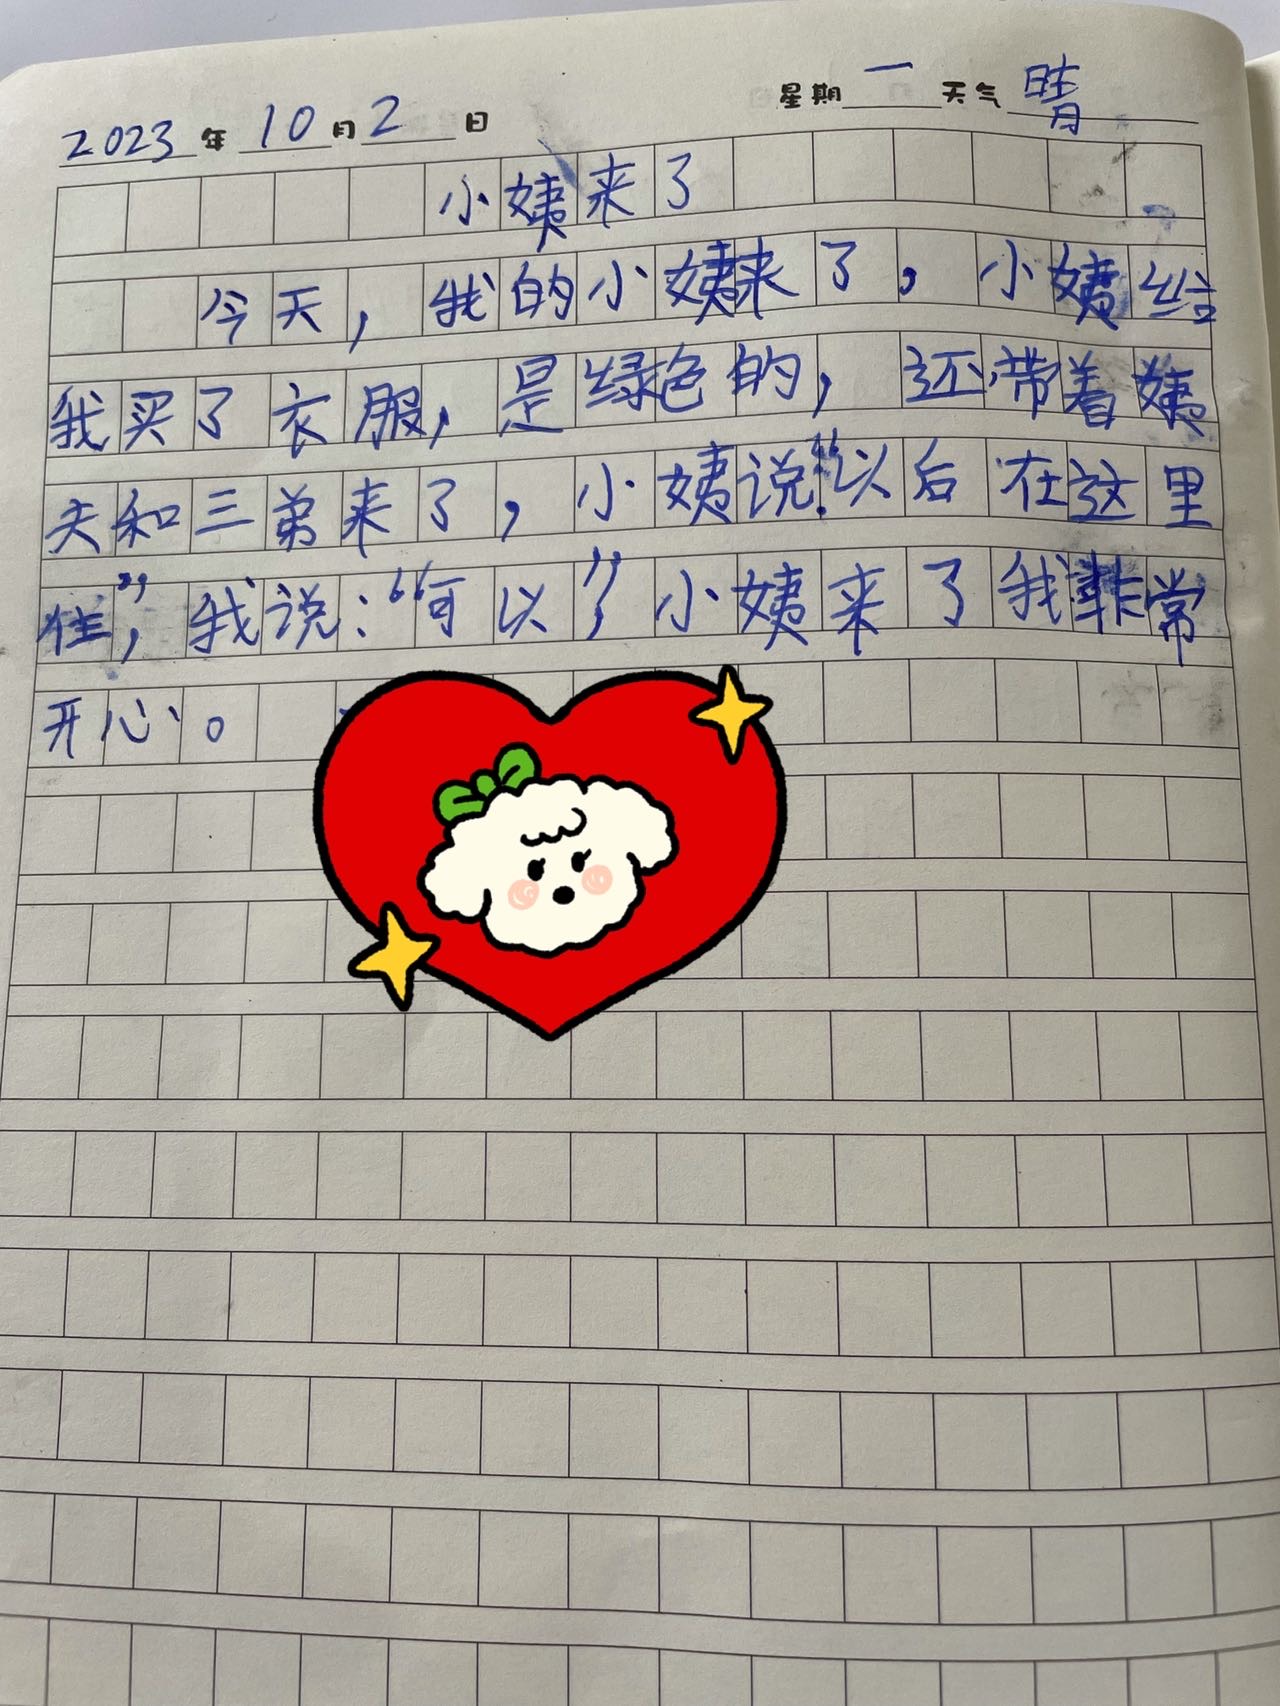 2023年10月2日 星期一天气晴
小姨来了
今天，我的小姨来了，小姨给
我买了衣服，是绿色的，还带着姨
夫和三弟来了，小姨说：“以后在这里
住”，我说：“可以”，小姨来了我非常
开心。